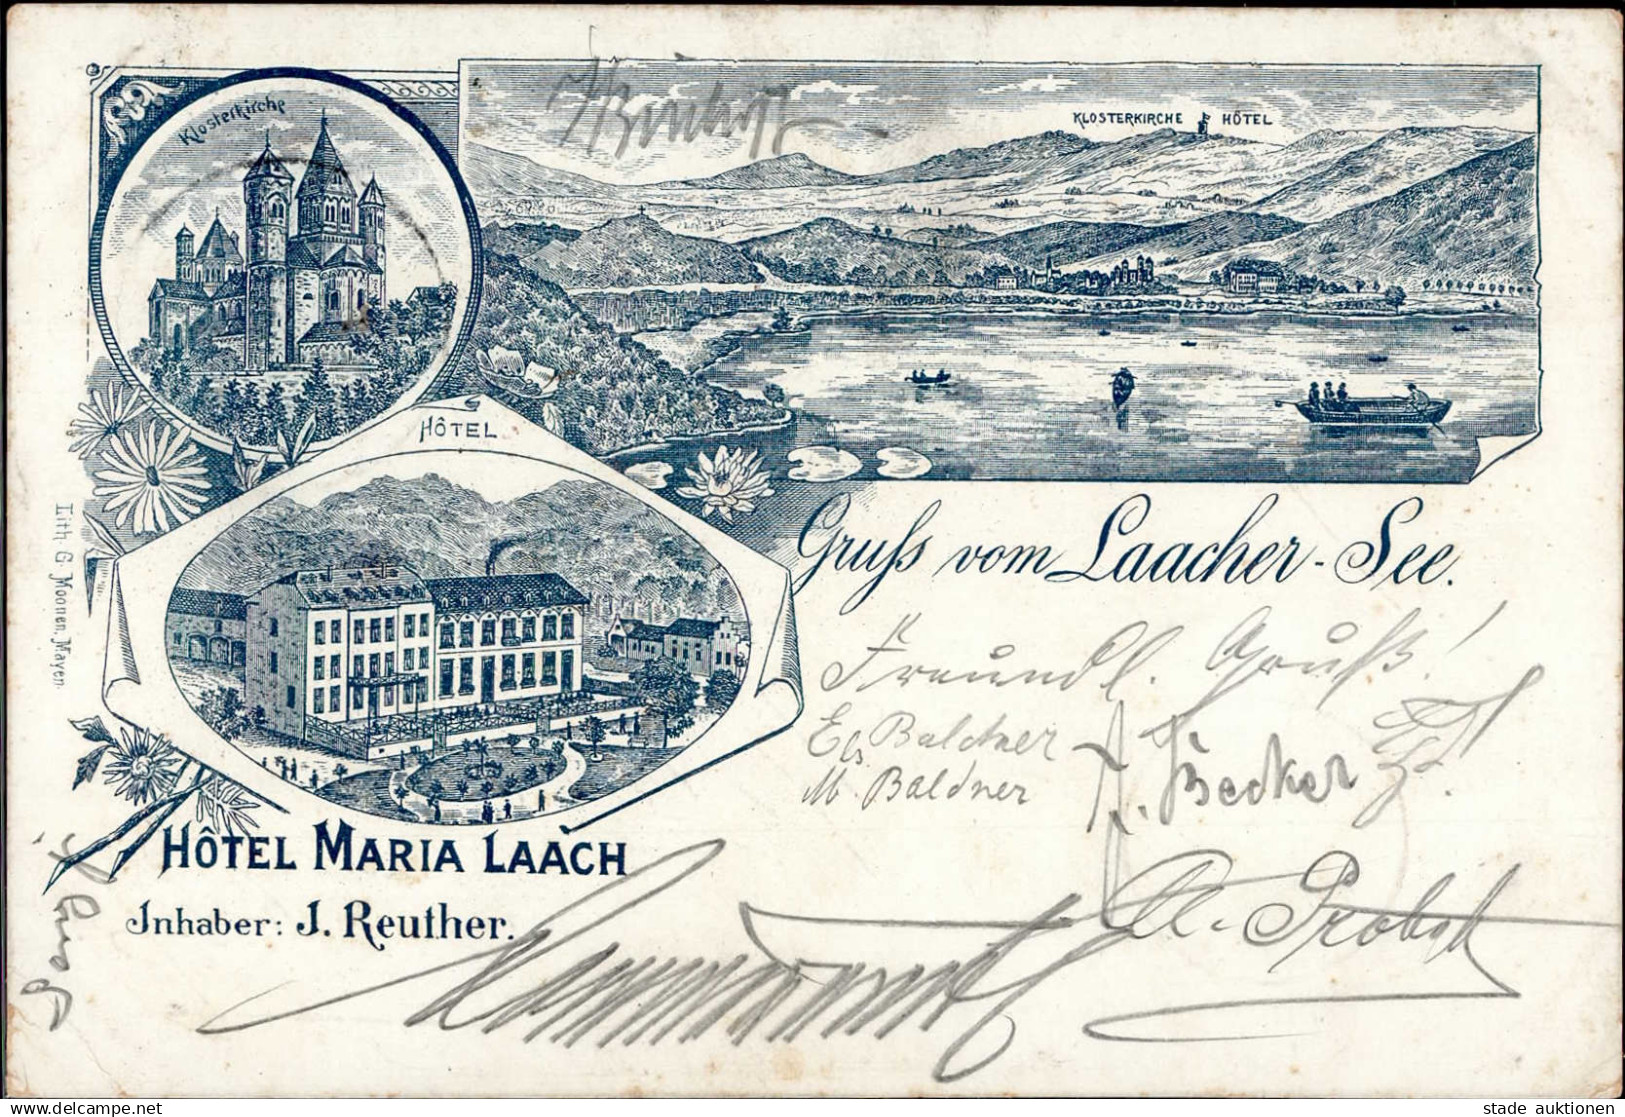 Klosterkirche
KLOSTERKIRCHE HÔTEL
HÔTEL
Gruſs vom Laacher-See.
Freundl. Gruß!
El. Baldner
M. Baldner
A. Becker
A. Probst
HÔTEL MARIA LAACH
Inhaber: J. Reuther.
Lith. G. Moonen, Mayen.
stade auktionen